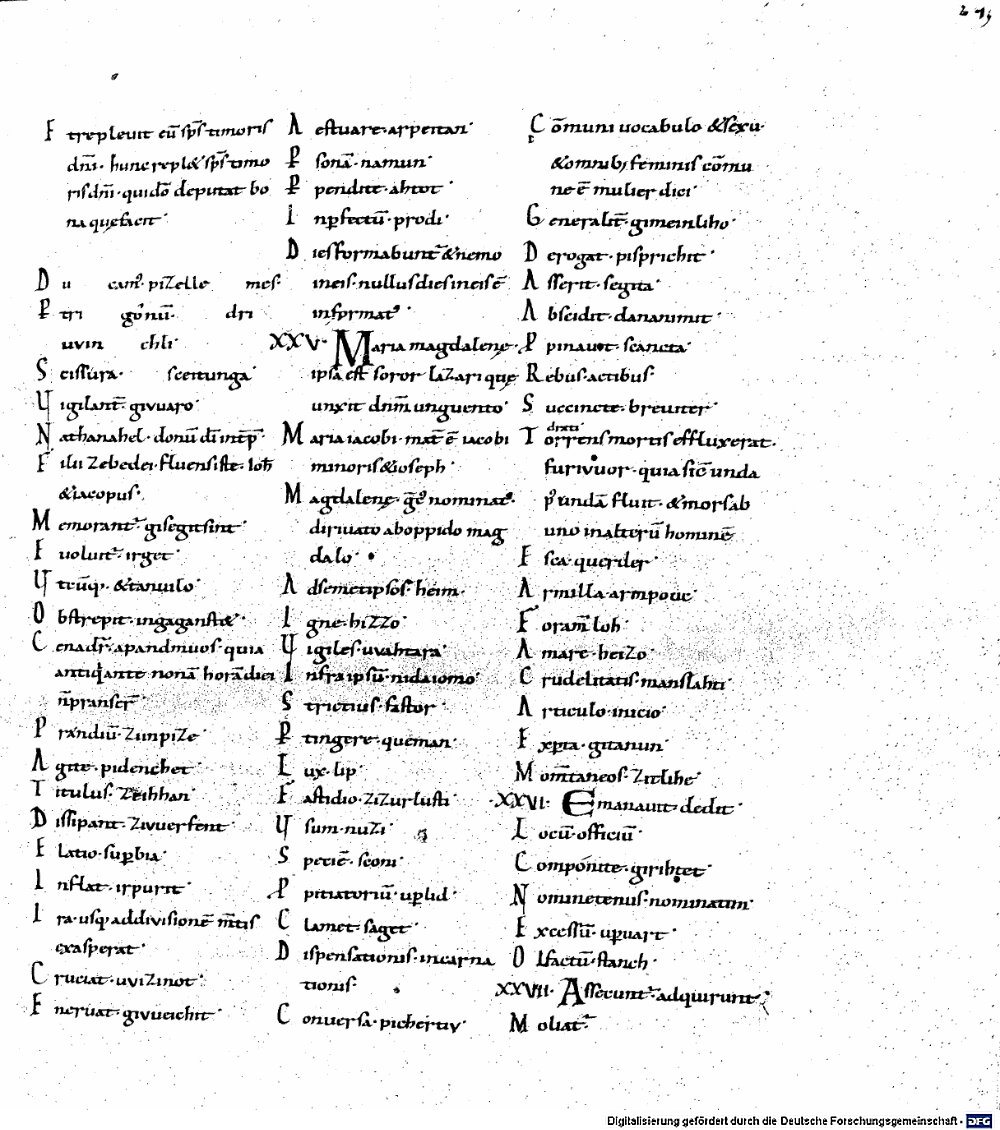 E trepleuit eū sp̄s timoris
dn̄i · hunc repl& sp̄s timo
ris dn̄i · quidō deputat bo
na quę facit ·
D u cam̄ · pizelle mes·
P tri gonū · dri
uvin chli ·
S cissura · sceitunga ·
U igilant̄ · givuaro ·
N athanahel · donū dī intp̄ ·
F ilii zebedei · fluens iste · ioh̄
& iacopus ·
M emorant̄ · gisegitsint ·
E uoluit̄ · irget ·
U trūq; · &tanuilo ·
O bstrepit · ingagan st& ·
C enadr̄ · apandmuos · quia
antiq̇ ante nonā horā dici
n̄ pranser̄ ·
P randiū · zimpize ·
A gite · pidenchet ·
T itulus · zeihhan ·
D issipant · zivuerfent ·
E latio · sup̄bia ·
I nflat · irpurit ·
I ra · usq; ad divisionē m̄tis
exasperat ·
C ruciat · uvizinot ·
E neruat · givueichit ·
A estuare · arpeitan ·
P sonā · namun ·
P pendite · ahtot ·
I np̄fectū · prodi ·
D ies formabunt̄ & nemo
in eis · nullus dies in eis ē
informat᷒ ·
XXV · Maria magdalenę ·
ipsa est soror lazari quę
unxit dnm̄ unguento ·
M aria iacobi · mat̄ ē iacobi
minoris & ioseph ·
M agdalenę · nominat᷒ ·
diriuato ab oppido mag
dalo ·
A dsemetipsos · heim ·
I gne · hizzo ·
U igiles · uvahtara ·
I nfra ipsū · nidaiomo ·
S trictius · fastor ·
P tingere · queman ·
L ux · lip ·
F astidio · zizurlusti
U sum · nuzi ·
S peciē · sconi ·
P pitiatoriū · up̄lid ·
C lamet · saget ·
D ispensationis · incarna
tionis ·
C onuersa · pichertiv ·
C ōmuni uocabulo & sexu ·
& omnib; feminis cōmu
ne ē mulier dici ·
G eneralit̄ · gimeinliho ·
D erogat · pisprichit ·
A sserit · segita ·
A bscidit · dananimit ·
P pinauit · scancta ·
R ebus · actibus ·
S uccincte · breuiter ·
drati
T orrens mortis effluxerat ·
furivuor · quia sic̄ unda
p᷒ undā fluit · & mors ab
uno in alterū hominē
E sca · querder ·
A rmilla · armpouc ·
F oram̄ · loh ·
A mare · heizo ·
C rudelitatis · manslahti ·
A rticulo · inicio ·
E xp̄ta · gitanun ·
M om̄taneos · zitlihe ·
XXVI · Emanauit · dedit ·
L ocū · officiū ·
C omponite · girihtet ·
N ominetenus · nominatim ·
E xcessū · up̄uart ·
O lfactū · stanch ·
XXVII · Assecunt̄ · adquirunt ·
M oliat̄